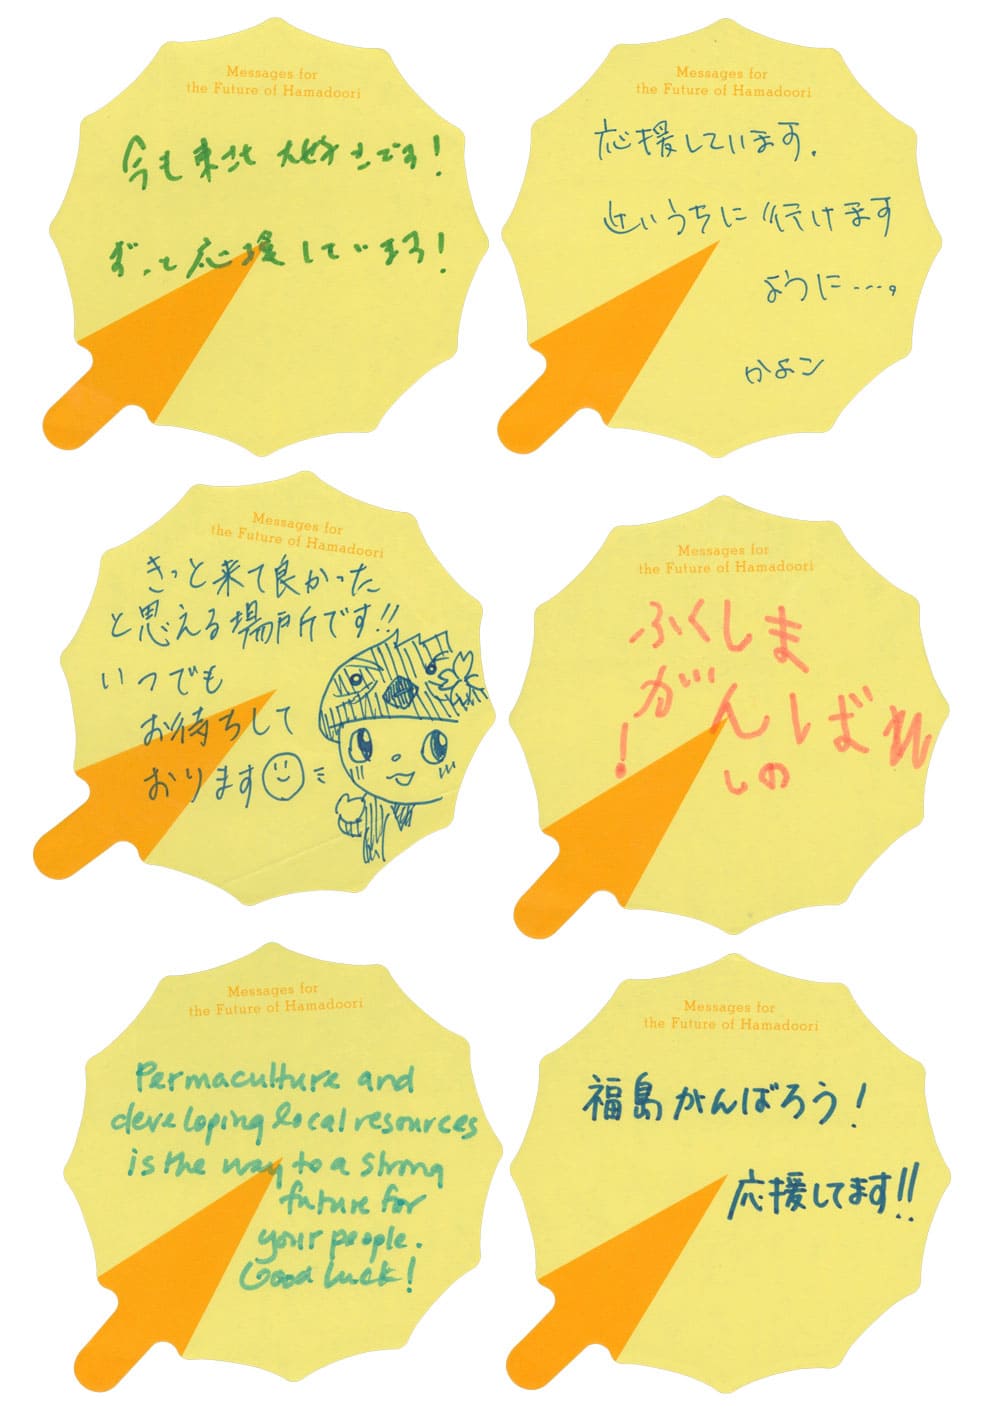 Messages for
the Future of Hamadoori
今も東北大好きです!
ずっと応援しています!
Messages for
the Future of Hamadoori
応援しています.
近いうちに行けます
ように…。
かよコ
Messages for
the Future of Hamadoori
きっと来て良かった
と思える場所です!!
いつでも
お待ちして
おります
Messages for
the Future of Hamadoori
ふくしま
がんばれ
!
しの
Messages for
the Future of Hamadoori
Permaculture and
developing local resources
is the way to a strong
future for
your people.
Good luck!
Messages for
the Future of Hamadoori
福島がんばろう!
応援してます!!